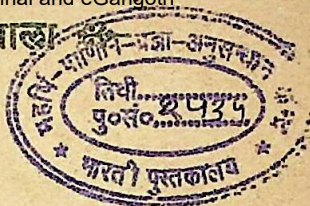 nai and eGangotri
माला
महर्षि-पाणिनि-प्रज्ञा-अनुसन्धान
तिथी..............
पु०सं० २५३५
भारती पुस्तकालय